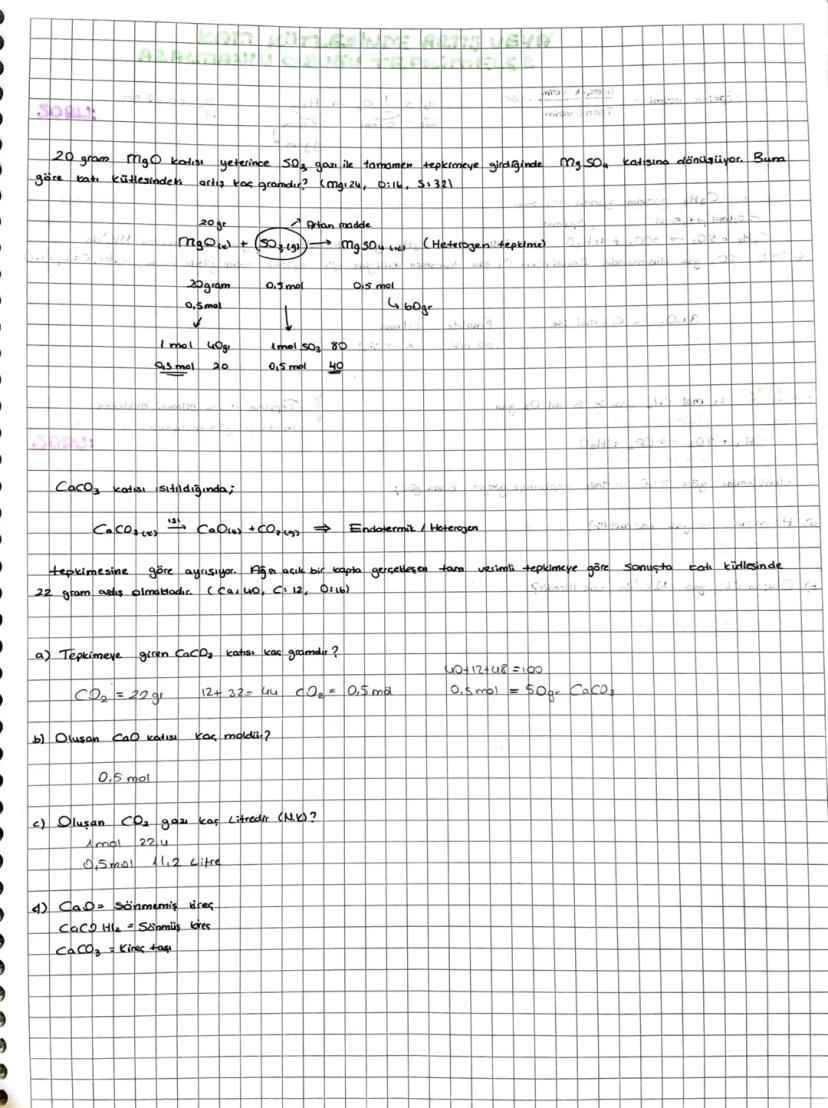 SORU:
20 gram MgO katısı yeterince SO₃ gazı ile tamamen tepkimeye girdiğinde MgSO₄ katısına dönüşüyor. Buna
göre katı kütlesindeki artış kaç gramdır? (Mg:24, O:16, S:32)
20gr ↗ Artan madde
MgO(k) + SO₃(g) → MgSO₄(k) (Heterogen tepkime)
20gram 0,5mol 0,5 mol
0,5mol ↳ 60gr
↓ ↓
1 mol 40gr 1mol SO₃ 80
0,5 mol 20 0,5mol 40
SORU:
CaCO₃ katısı ısıtıldığında;
CaCO₃(k) ısı→ CaO(k) + CO₂(g) ⇒ Endotermik / Heterogen
tepkimesine göre ayrışıyor. Ağzı açık bir kapta gerçekleşen tam verimli tepkimeye göre sonuçta katı kütlesinde
22 gram azalış olmaktadır. (Ca:40, C:12, O:16)
a) Tepkimeye giren CaCO₃ katısı kaç gramdır?
40+12+48=100
CO₂ = 22gr 12+32=44 CO₂ = 0,5mol 0,5mol = 50gr CaCO₃
b) Oluşan CaO katısı kaç moldür?
0,5 mol
c) Oluşan CO₂ gazı kaç Litredir (N.K)?
1mol 22,4
0,5mol 11,2 Litre
d) CaO = Sönmemiş kireç
CaCO H₂ = Sönmüş kireç
CaCO₃ = Kireç taşı